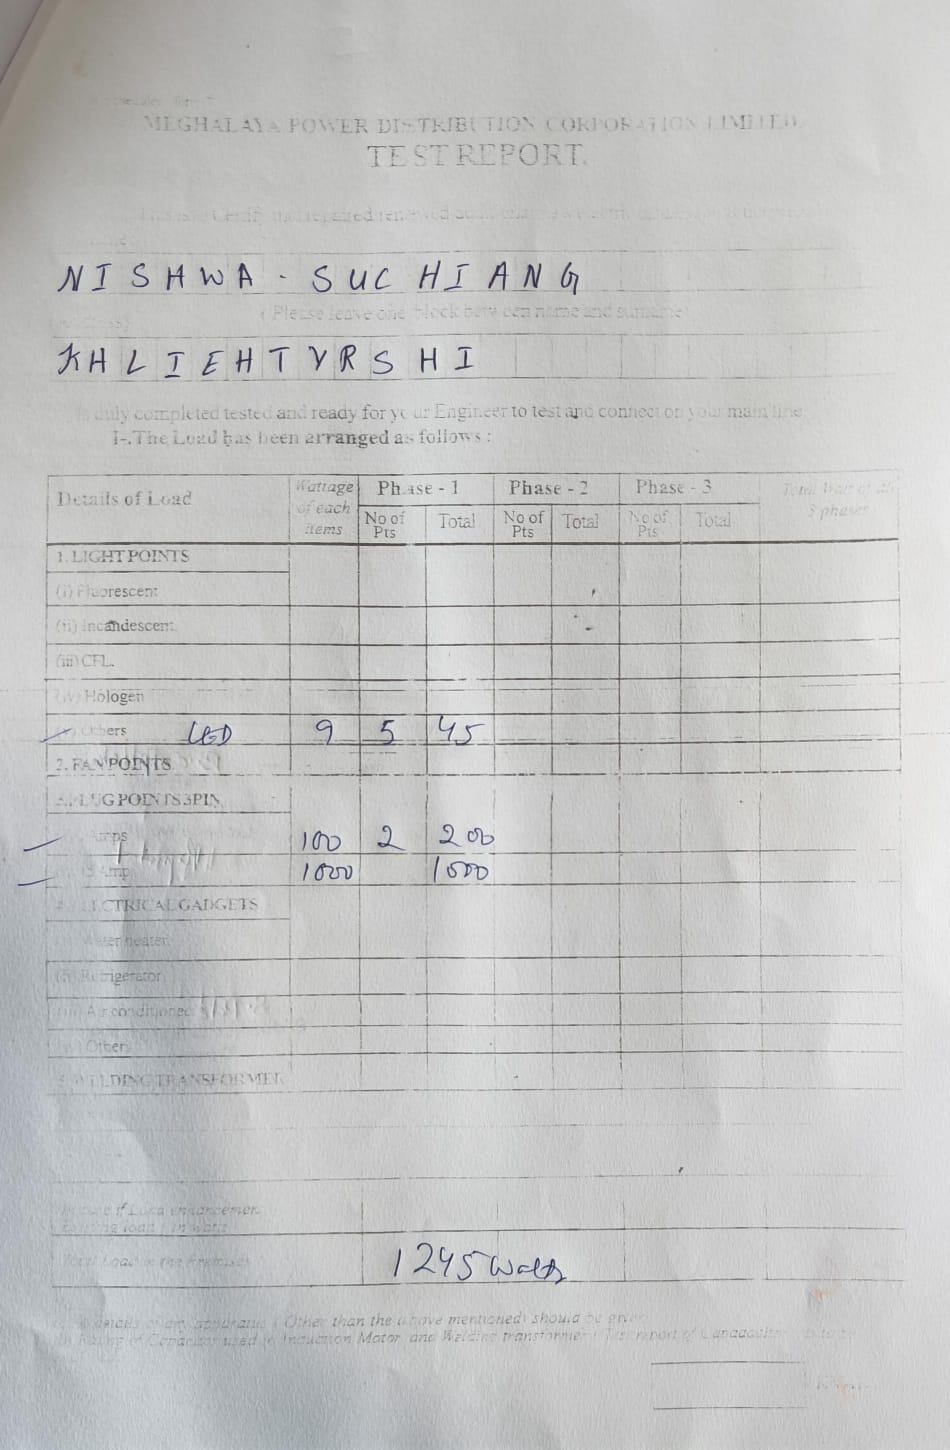 MEGHALAYA POWER DISTRIBUTION CORPORATION LIMITED.
TEST REPORT.
Certify that repaired renewed
NISHWA - SUCHIANG
(Please leave one block between name and surname)
KHLIEHTYRSHI
duly completed tested and ready for your Engineer to test and connect on your main line
I-.The Load has been arranged as follows :
Details of Load Wattage of each items Phase - 1 Phase - 2 Phase - 3 Total Watt of all 3 phases
No of Pts Total No of Pts Total No of Pts Total
1. LIGHT POINTS
(i) Fluorescent
(ii) Incandescent
(iii) CFL.
(iv) Hologen
Others LED 9 5 45
2. FAN POINTS
PLUG POINTS 3PIN
Amps 100 2 200
Amp 1000 1000
ELECTRICAL GADGETS
Water heater
(ii) Refrigerator
(iii) Air conditioner
(iv) Other
WELDING TRANSFORMER
if Load enhancement
Existing load in watt
Total Load in the Premises 1245 Watts
details of any apparatus (Other than the above mentioned) should be given
Rating of Capacitor used in Induction Motor and Welding transformer (Test report of Capacitor